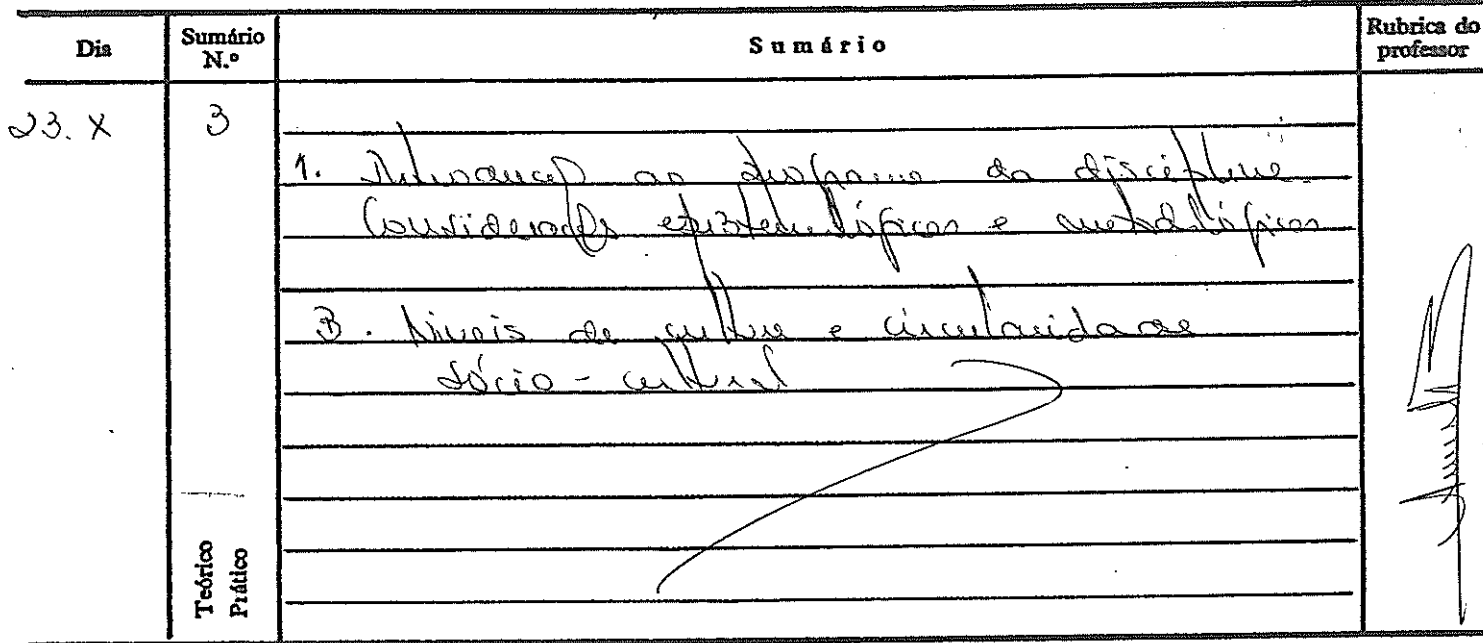 Dia
Sumário N.º
Sumário
Rubrica do professor
23. X
3
1. Introdução ao programa da disciplina.
Considerações epistemológicas e metodológicas
3. Níveis de cultura e circularidade
sócio-cultural
Teórico
Prático